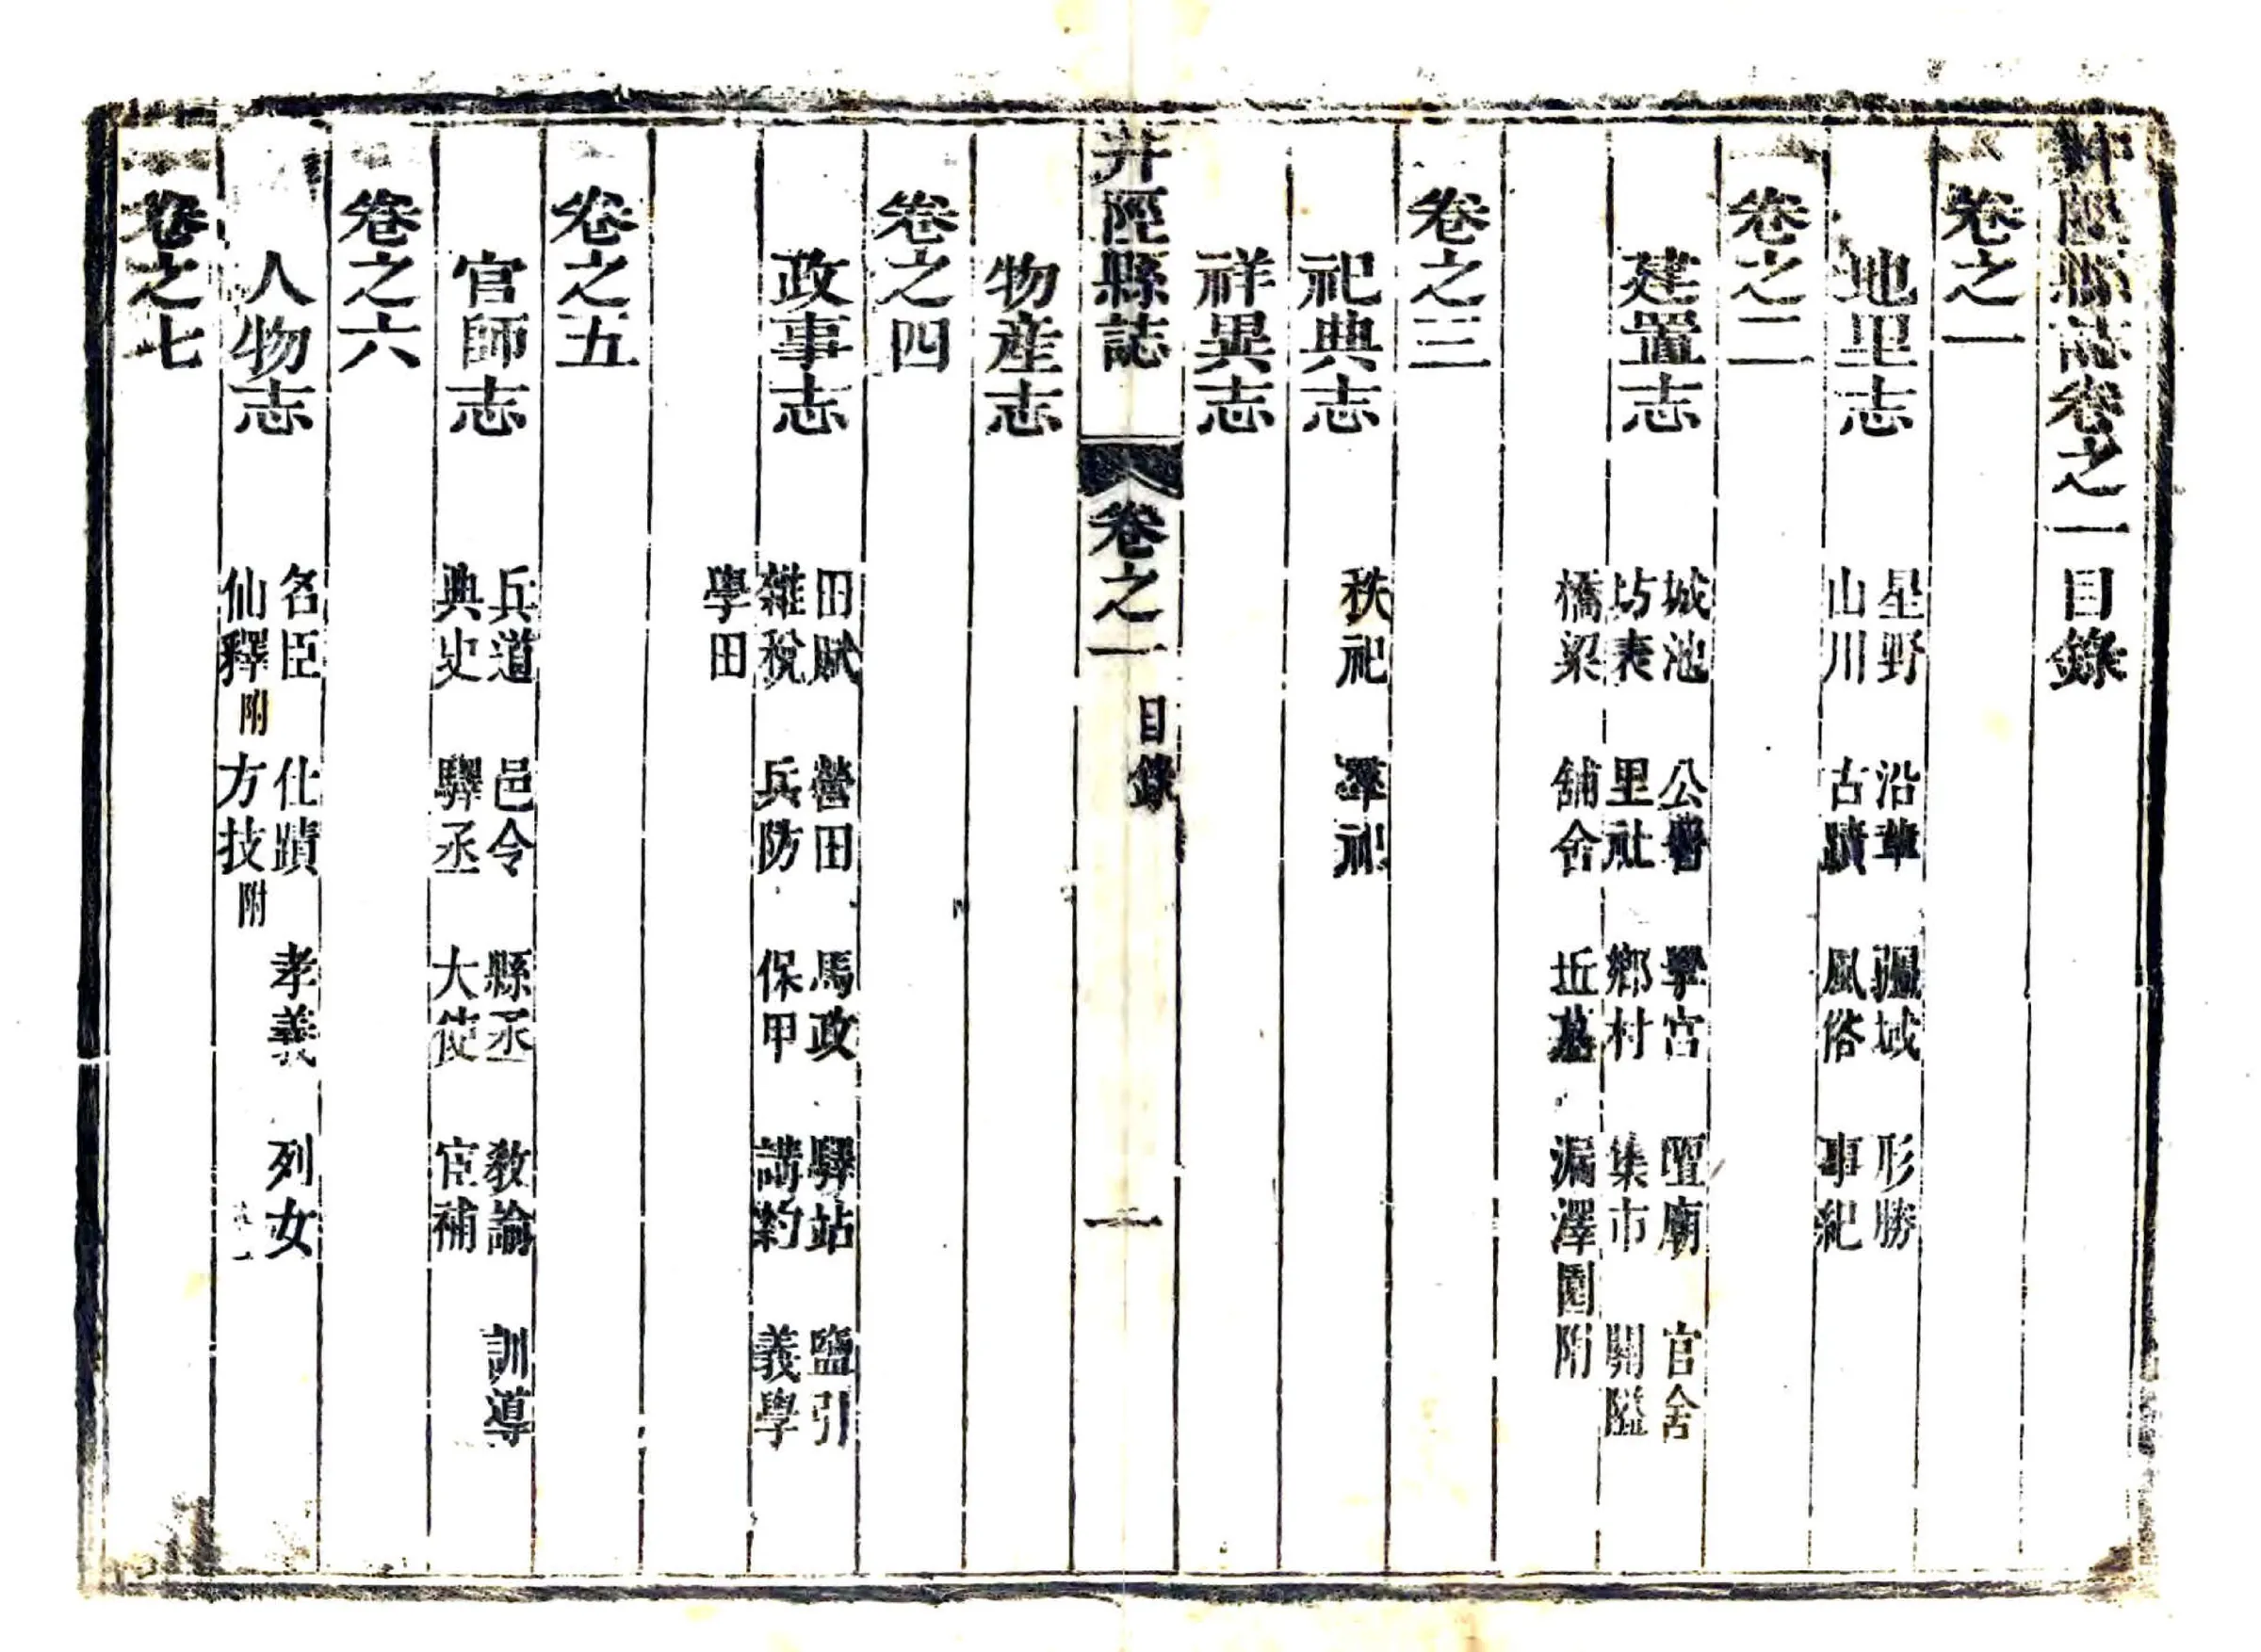 井陘縣誌卷之一目錄
卷之一
地里志
星野 沿革 疆域 形勝
山川 古蹟 風俗 事紀
卷之二
建置志
城池 公署 學宮 壇廟 官舍
坊表 里社 鄉村 集市 關隘
橋梁 舖舍 坵墓 漏澤園附
卷之三
祀典志
秩祀 羣祀
祥異志
井陘縣誌 卷之一 目錄 一
物産志
卷之四
政事志
田賦 營田 馬政 驛站 鹽引
雜稅 兵防 保甲 講約 義學
學田
卷之五
官師志
兵道 邑令 縣丞 教諭 訓導
典史 驛丞 大使 宦補
卷之六
人物志
名臣 仕蹟 孝義 列女
仙釋附 方技附
卷之七